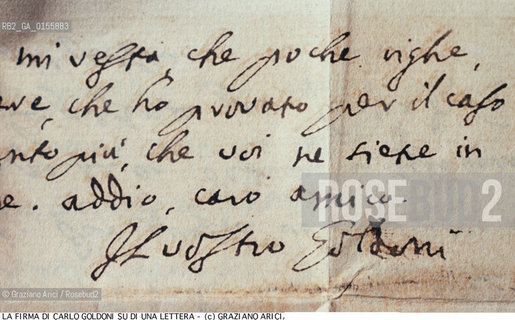 RB2_GA_0155883
mi resta, che poche righe,
che ho provato per il caso
più, che voi ne siete in
e. addio, caro amico.
Il vostro Goldoni
ROSEBUD2
© Graziano Arici / Rosebud2
LA FIRMA DI CARLO GOLDONI SU DI UNA LETTERA - (c) GRAZIANO ARICI,